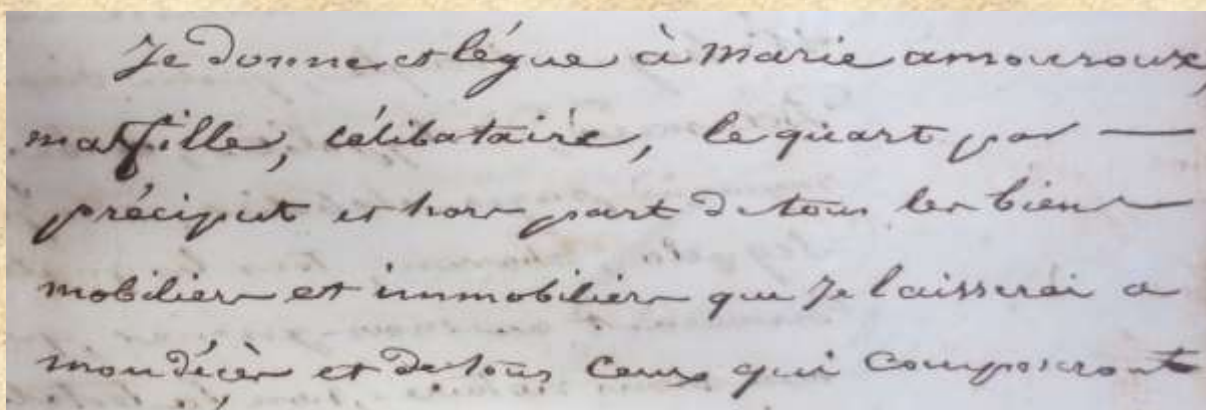 Je donne et légue à Marie amouroux,
ma fille, célibataire, le quart par —
préciput et hors part de tous les biens
mobiliers et immobiliers que je laisserai a
mon décès et de tous ceux qui composeront